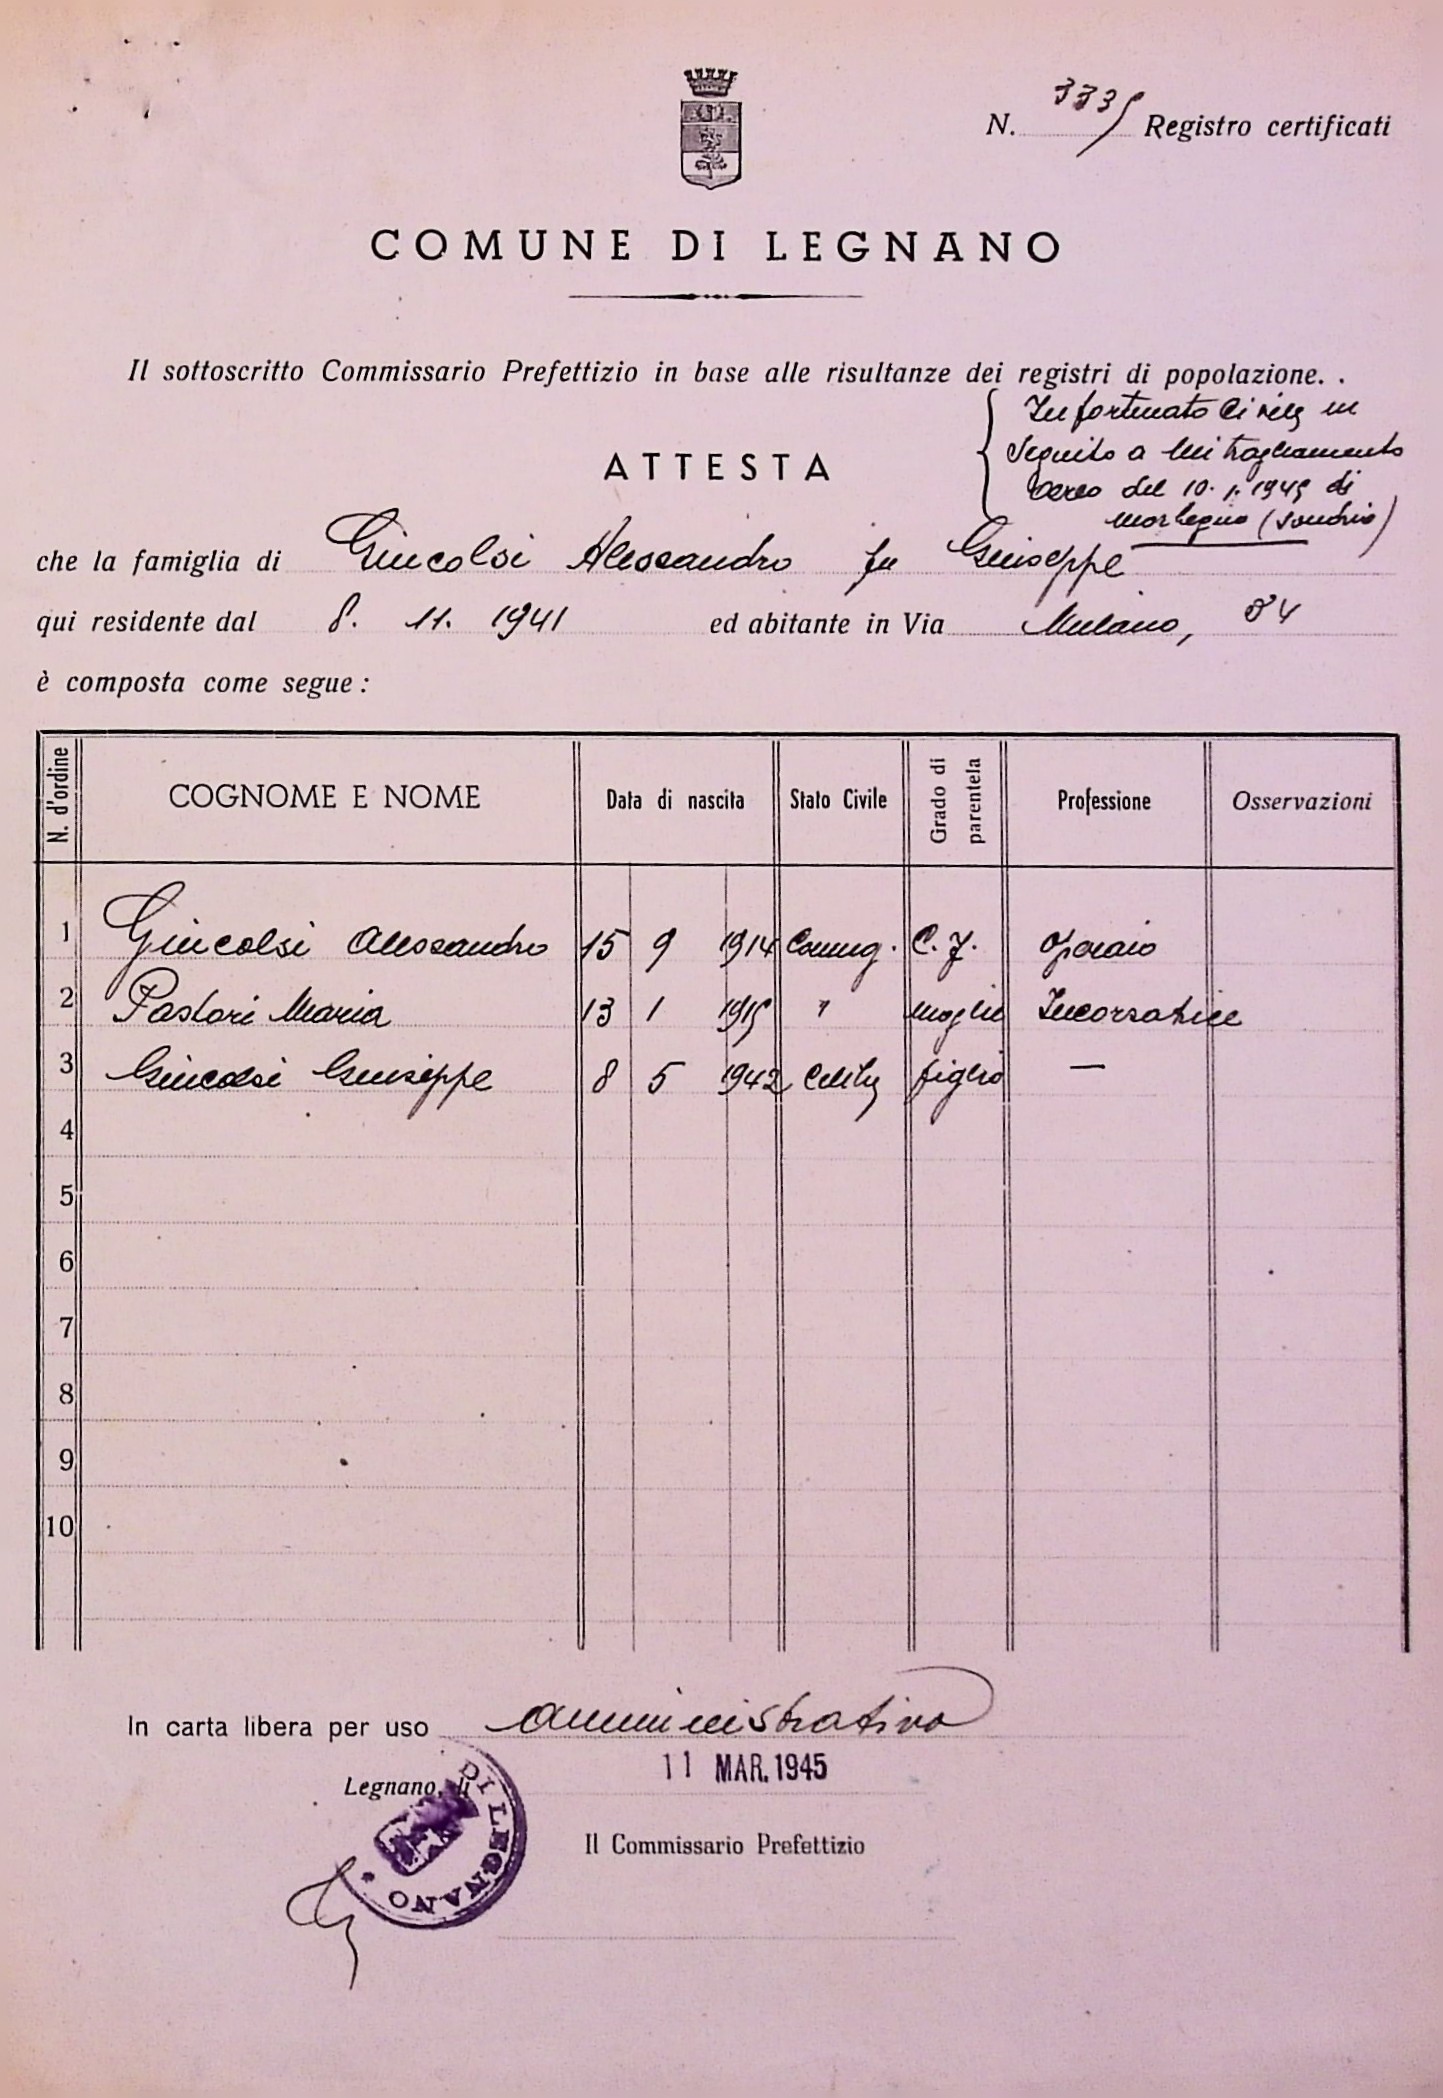 N. 3335 Registro certificati
COMUNE DI LEGNANO
Il sottoscritto Commissario Prefettizio in base alle risultanze dei registri di popolazione. .
Infortunato Civile in
seguito a mitragliamento
aereo del 10.1.1945 di
Morbegno (Sondrio)
ATTESTA
che la famiglia di Giucolsi Alessandro fu Giuseppe
qui residente dal 8. 11. 1941 ed abitante in Via Milano, 84
è composta come segue :
N. d'ordine COGNOME E NOME Data di nascita Stato Civile Grado di parentela Professione Osservazioni
1 Giucolsi Alessandro 15 9 1914 Coniug. C. f. operaio
2 Pastori Maria 13 1 1915 " moglie Incorsatrice
3 Giucolsi Giuseppe 8 5 1942 Celibe figlio —
4
5
6
7
8
9
10
In carta libera per uso amministrativo
Legnano, li 11 MAR. 1945
DI LEGNANO
Il Commissario Prefettizio